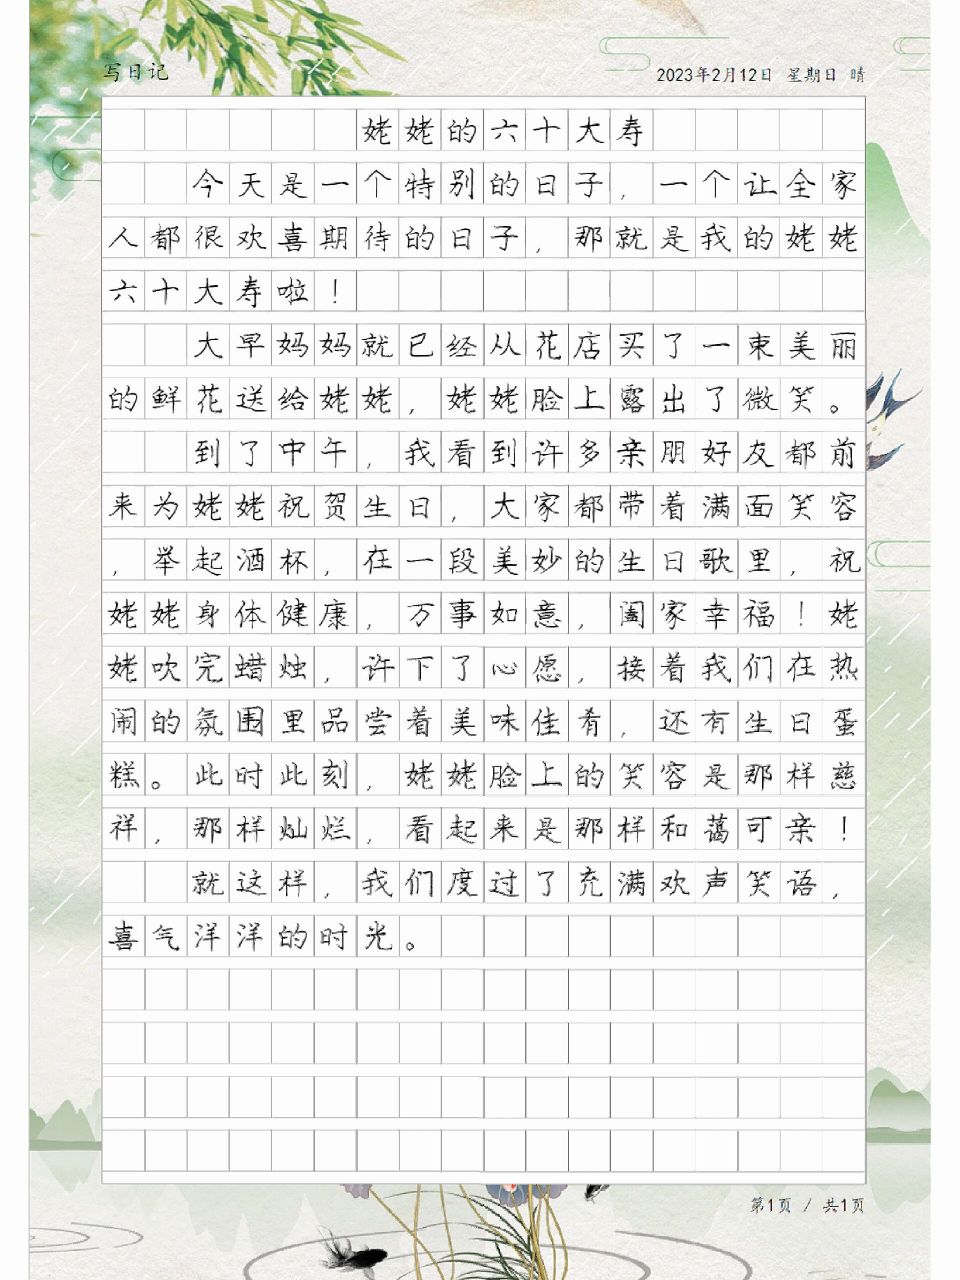 写日记
2023年2月12日 星期日 晴
姥姥的六十大寿
今天是一个特别的日子，一个让全家
人都很欢喜期待的日子，那就是我的姥姥
六十大寿啦！
大早妈妈就已经从花店买了一束美丽
的鲜花送给姥姥，姥姥脸上露出了微笑。
到了中午，我看到许多亲朋好友都前
来为姥姥祝贺生日，大家都带着满面笑容
，举起酒杯，在一段美妙的生日歌里，祝
姥姥身体健康，万事如意，阖家幸福！姥
姥吹完蜡烛，许下了心愿，接着我们在热
闹的氛围里品尝着美味佳肴，还有生日蛋
糕。此时此刻，姥姥脸上的笑容是那样慈
祥，那样灿烂，看起来是那样和蔼可亲！
就这样，我们度过了充满欢声笑语，
喜气洋洋的时光。
第1页 / 共1页